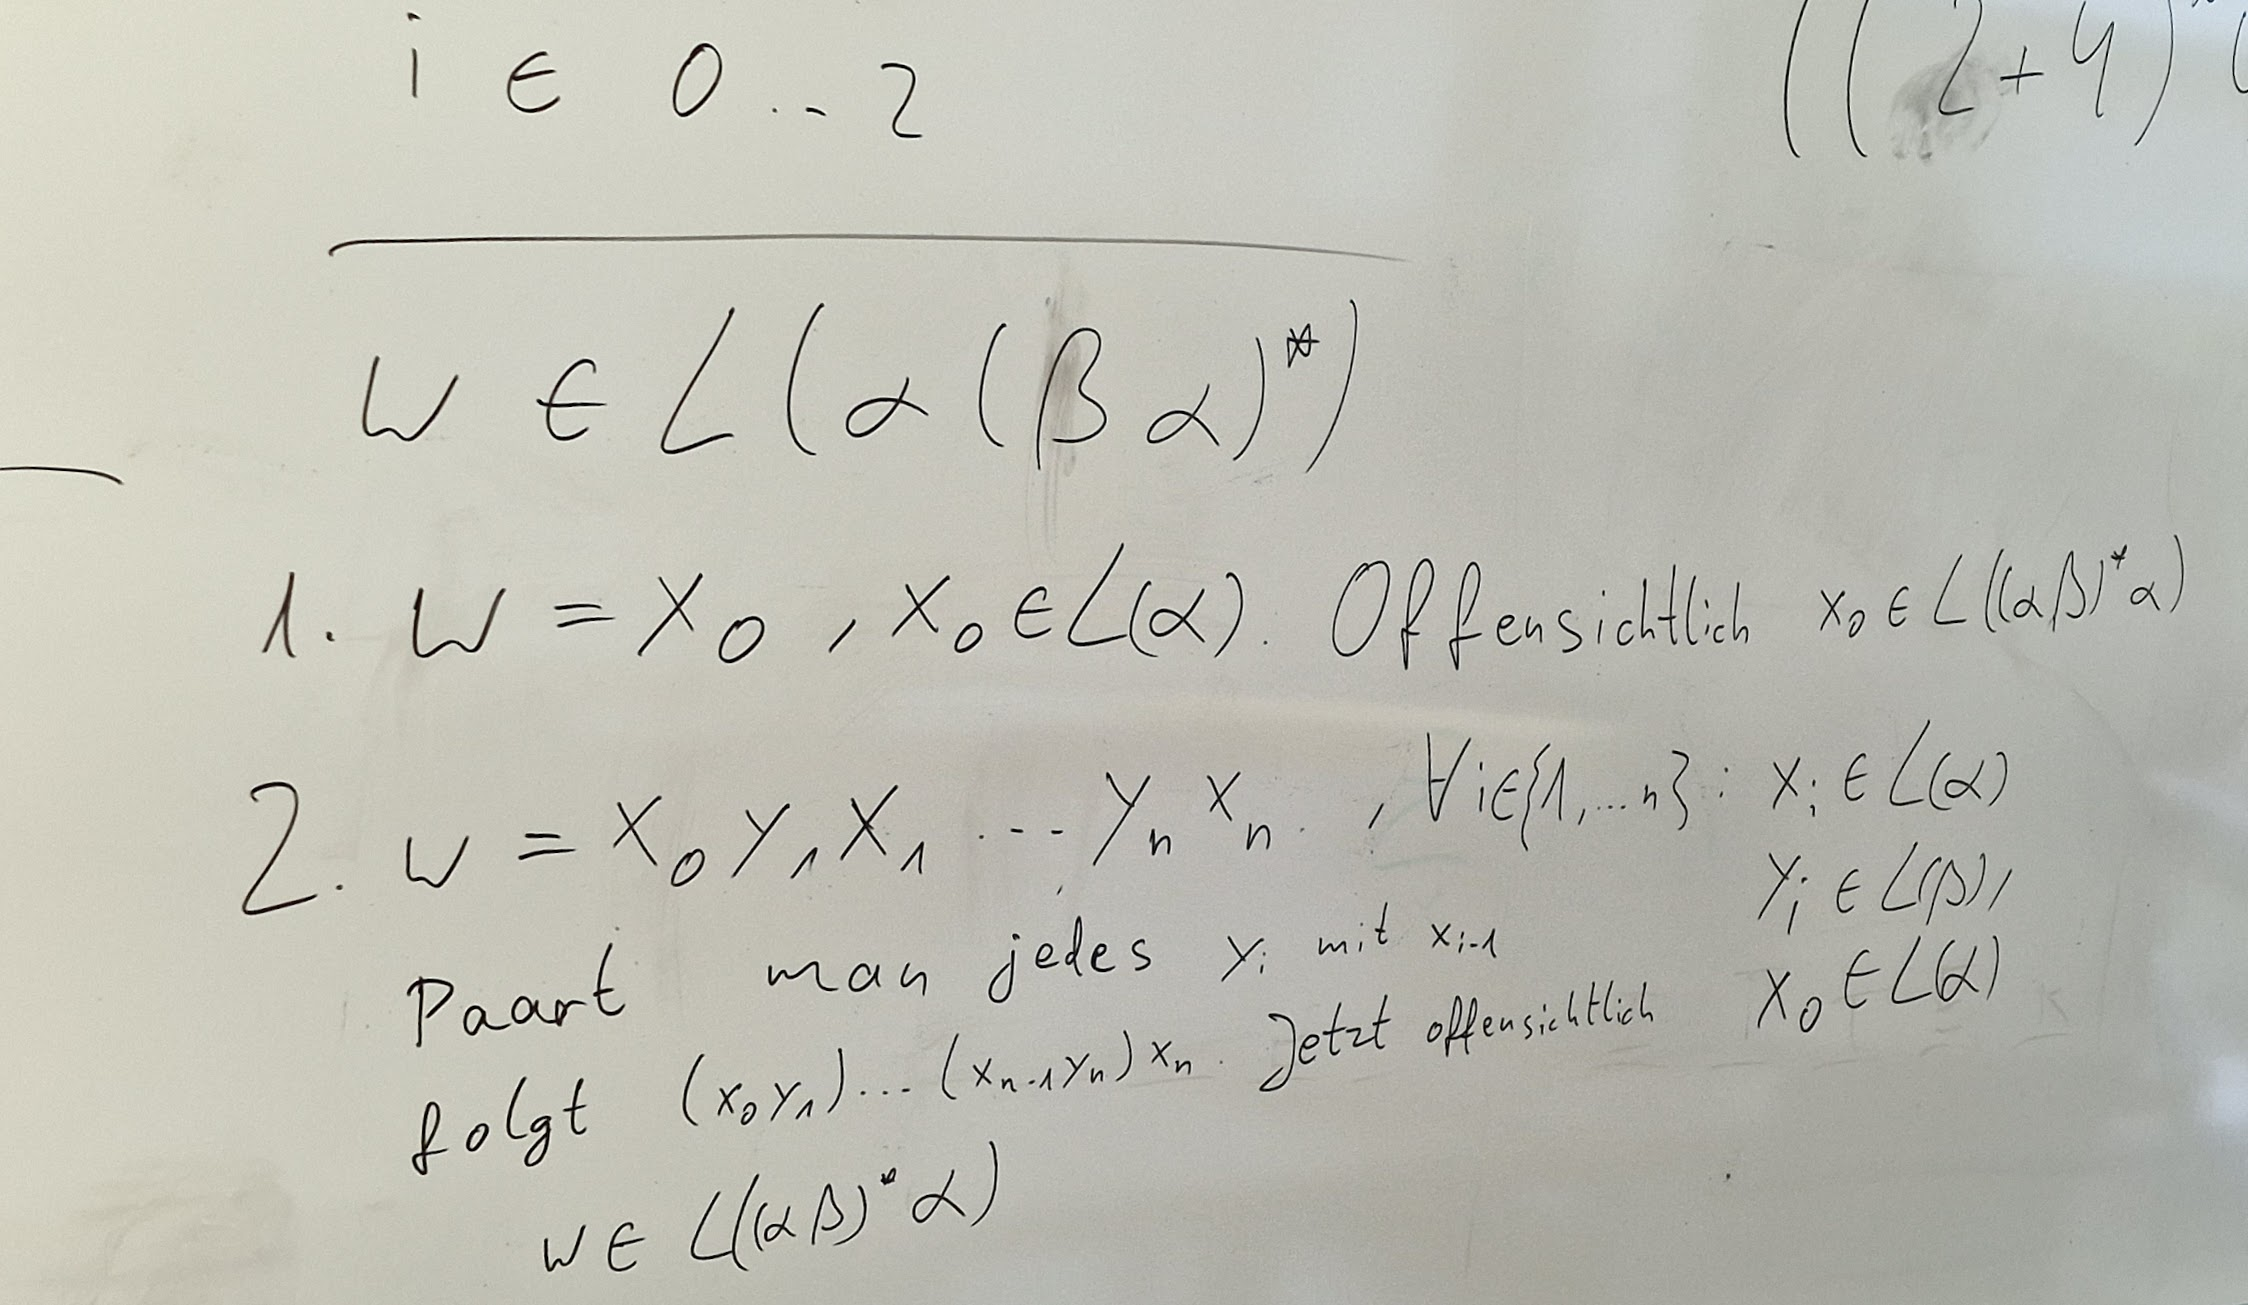 i ∈ 0 .. 2
((2+4)*(
w ∈ L(α(βα)*)
1. w = x₀ , x₀ ∈ L(α). Offensichtlich x₀ ∈ L((αβ)*α)
2. w = x₀ y₁ x₁ ... yₙ xₙ. , ∀i∈{1,...n} : xᵢ ∈ L(α)
yᵢ ∈ L(β),
x₀ ∈ L(α)
Paart man jedes yᵢ mit xᵢ₋₁
folgt (x₀y₁)...(xₙ₋₁yₙ)xₙ. Jetzt offensichtlich
w ∈ L((αβ)*α)